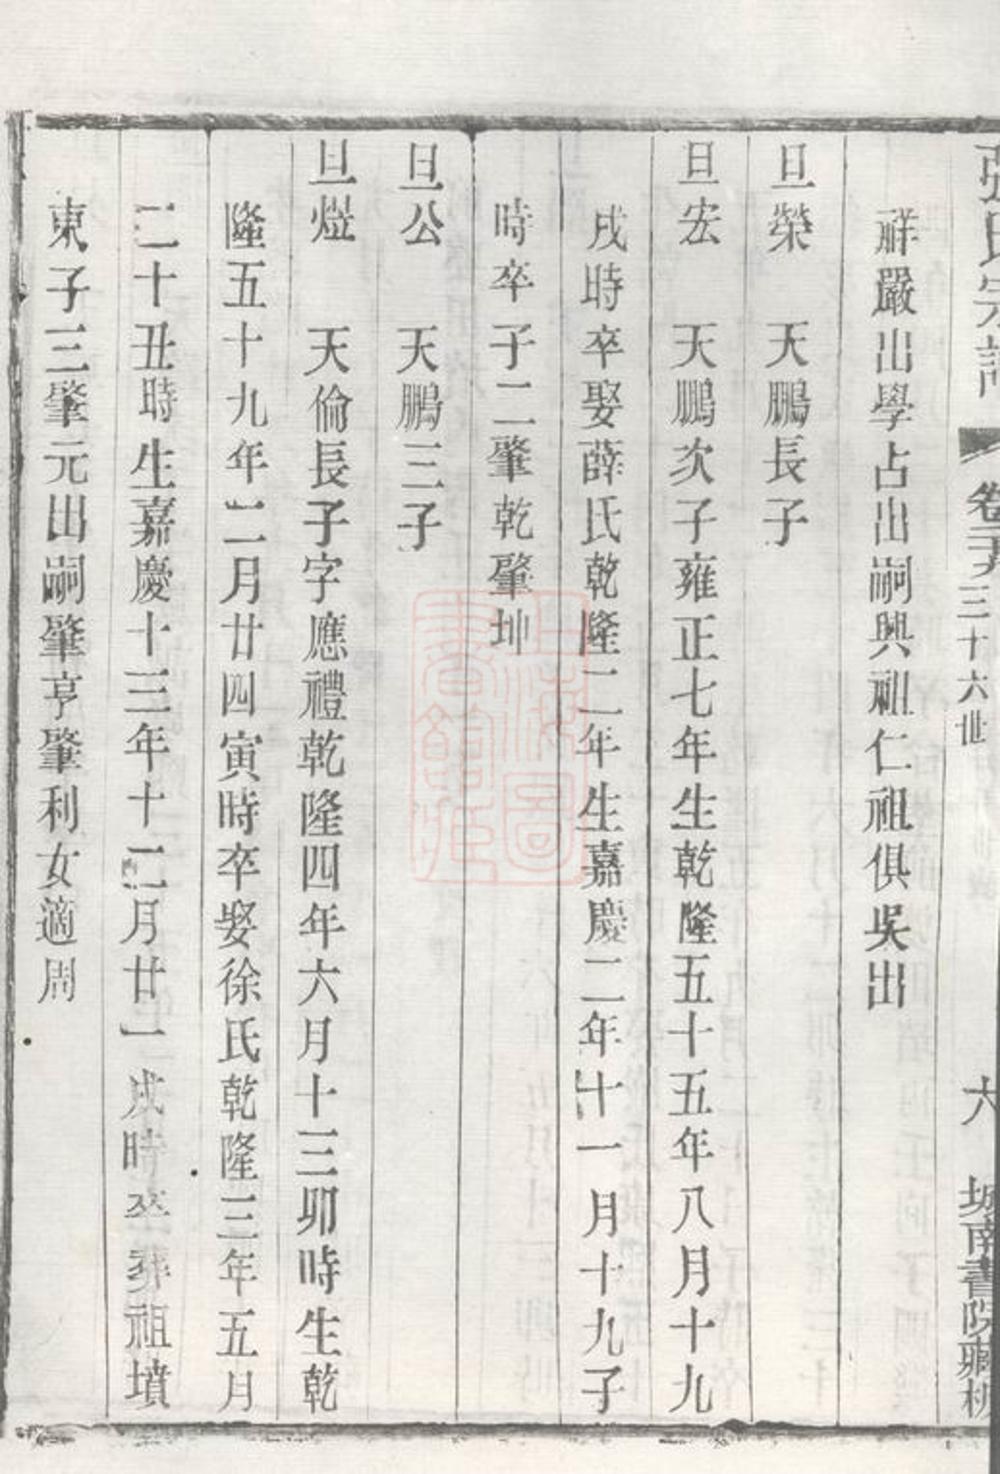 張氏宗譜 卷二十九 三十六世 六 城南書院藏板
祥嚴出學占出嗣興祖仁祖俱吳出
旦榮 天鵬長子
旦宏 天鵬次子雍正七年生乾隆五十五年八月十九
戌時卒娶薛氏乾隆二年生嘉慶二年十一月十九子
時卒子二肇乾肇坤
旦公 天鵬三子
旦煜 天倫長子字應禮乾隆四年六月十三卯時生乾
隆五十九年二月廿四寅時卒娶徐氏乾隆三年五月
二十丑時生嘉慶十三年十二月廿一戌時卒葬祖墳
東子三肇元出嗣肇亨肇利女適周
上海圖書館藏